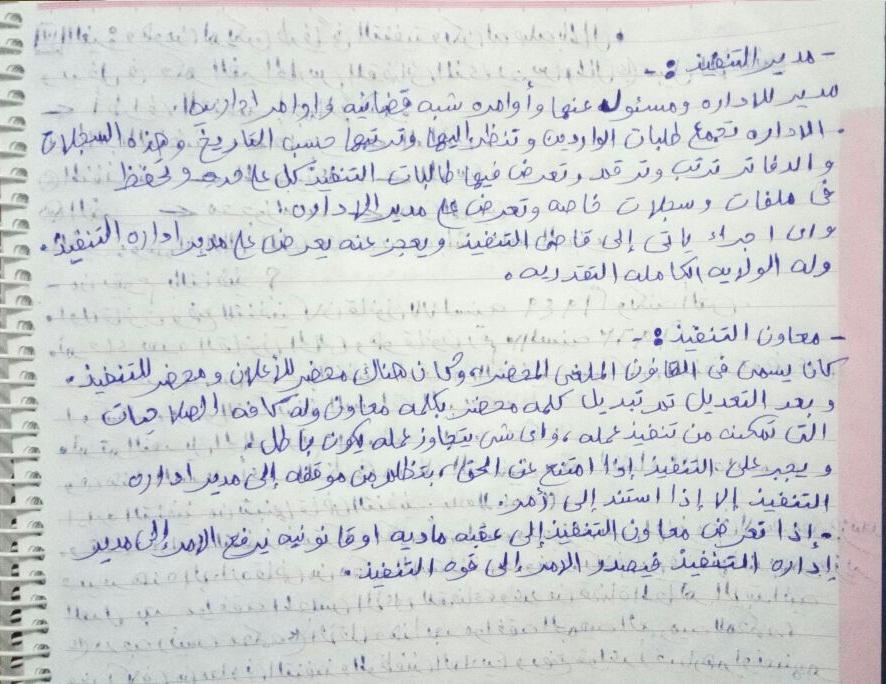 - مدير التنفيذ :-
مدير للاداره ومسئول عنها وأوامره شبه قضائيه واوامر اداريه.
. الاداره تجمع طلبات الواردين وتنظر إليها وترتبها حسب التاريخ وهذه السجلات
والدفاتر ترتب وترقم وتعرض فيها طالبات التنفيذ كل على حده وتحفظ
فى ملفات وسجلات خاصه وتعرض على مدير الاداره.
واى اجراء ياتى إلى قاضى التنفيذ ويعجز عنه يعرض على مدير اداره التنفيذ.
وله الولايه الكامله التقديريه.
- معاون التنفيذ :-
كان يسمى فى القانون الملغى المحضر، وكان هناك محضر للأعلان ومحضر للتنفيذ.
وبعد التعديل تم تبديل كلمه محضر بكلمه معاون وله كافه الصلاحيات
التى تمكنه من تنفيذ عمله، واى شى يتجاوز عمله يكون باطل.
ويجبر على التنفيذ إذا امتنع عن الحق، بتظلم من موقفه إلى مدير اداره
التنفيذ إلا إذا استند إلى أمو.
. إذا تعرض معاون التنفيذ إلى عقبه ماديه او قانونيه يرفع الامر إلى مدير
إداره التنفيذ فيصدر الامر إلى قوه التنفيذ.